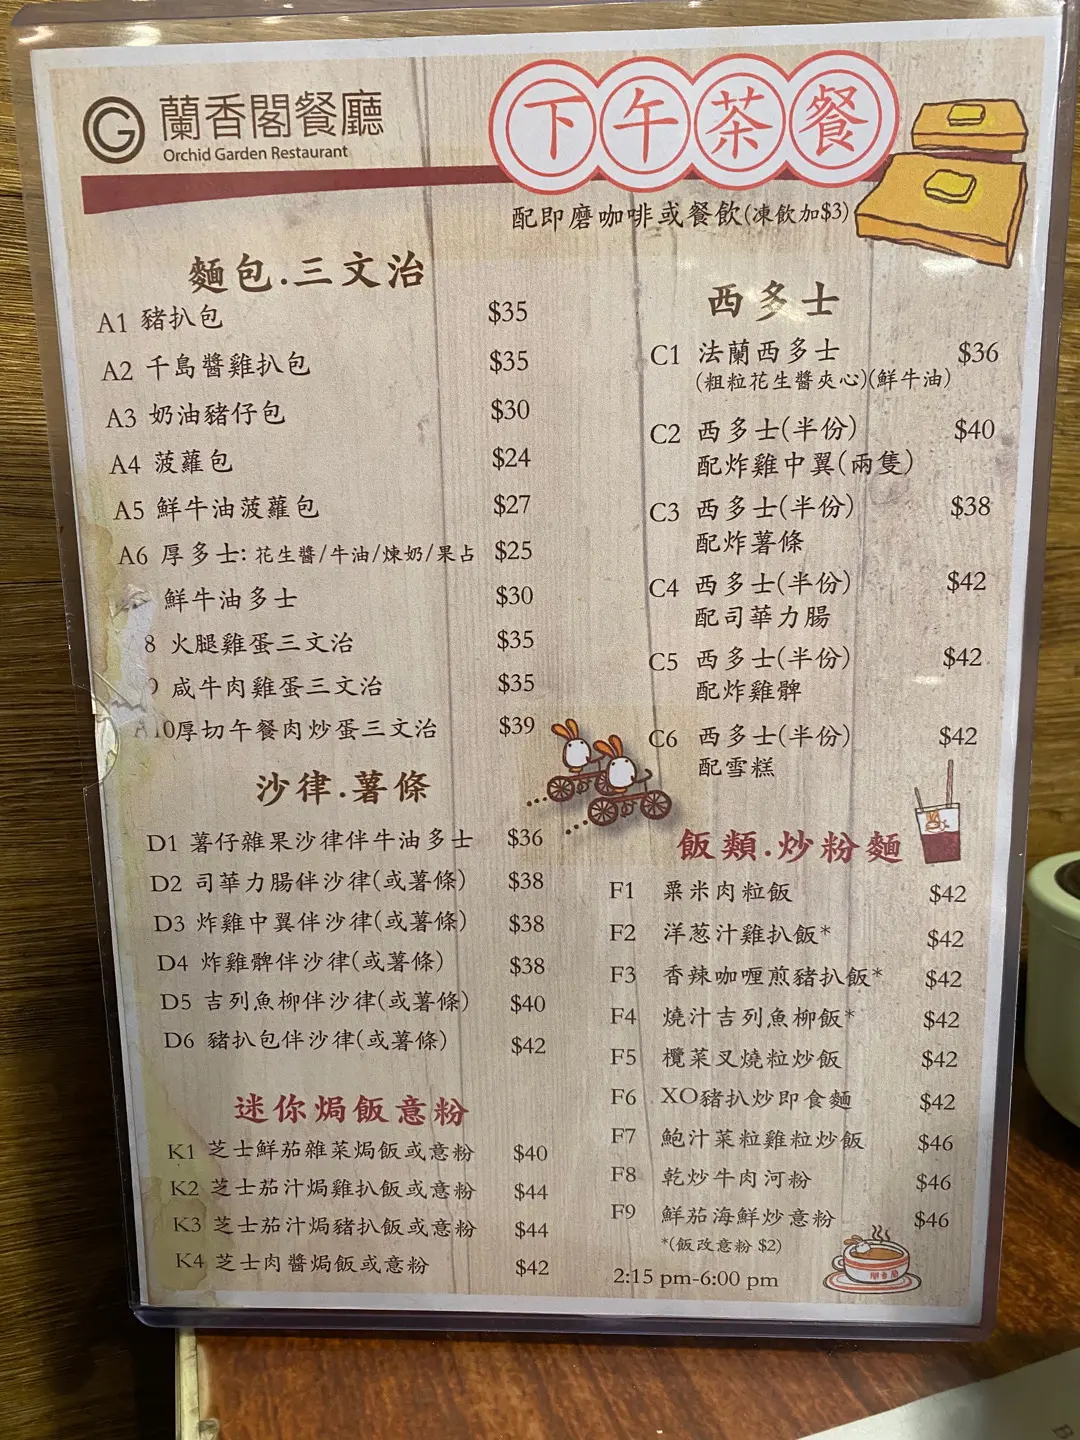 蘭香閣餐廳
Orchid Garden Restaurant
下午茶餐
配即磨咖啡或餐飲(凍飲加$3)
麵包.三文治
A1 豬扒包 $35
A2 千島醬雞扒包 $35
A3 奶油豬仔包 $30
A4 菠蘿包 $24
A5 鮮牛油菠蘿包 $27
A6 厚多士:花生醬/牛油/煉奶/果占 $25
鮮牛油多士 $30
8 火腿雞蛋三文治 $35
9 咸牛肉雞蛋三文治 $35
A10厚切午餐肉炒蛋三文治 $39
沙律.薯條
D1 薯仔雜果沙律伴牛油多士 $36
D2 司華力腸伴沙律(或薯條) $38
D3 炸雞中翼伴沙律(或薯條) $38
D4 炸雞髀伴沙律(或薯條) $38
D5 吉列魚柳伴沙律(或薯條) $40
D6 豬扒包伴沙律(或薯條) $42
迷你焗飯意粉
K1 芝士鮮茄雜菜焗飯或意粉 $40
K2 芝士茄汁焗雞扒飯或意粉 $44
K3 芝士茄汁焗豬扒飯或意粉 $44
K4 芝士肉醬焗飯或意粉 $42
西多士
C1 法蘭西多士 $36
(粗粒花生醬夾心)(鮮牛油)
C2 西多士(半份) $40
配炸雞中翼(兩隻)
C3 西多士(半份) $38
配炸薯條
C4 西多士(半份) $42
配司華力腸
C5 西多士(半份) $42
配炸雞髀
C6 西多士(半份) $42
配雪糕
飯類.炒粉麵
F1 粟米肉粒飯 $42
F2 洋葱汁雞扒飯* $42
F3 香辣咖喱煎豬扒飯* $42
F4 燒汁吉列魚柳飯* $42
F5 欖菜叉燒粒炒飯 $42
F6 XO豬扒炒即食麵 $42
F7 鮑汁菜粒雞粒炒飯 $46
F8 乾炒牛肉河粉 $46
F9 鮮茄海鮮炒意粉 $46
*(飯改意粉 $2)
2:15 pm-6:00 pm